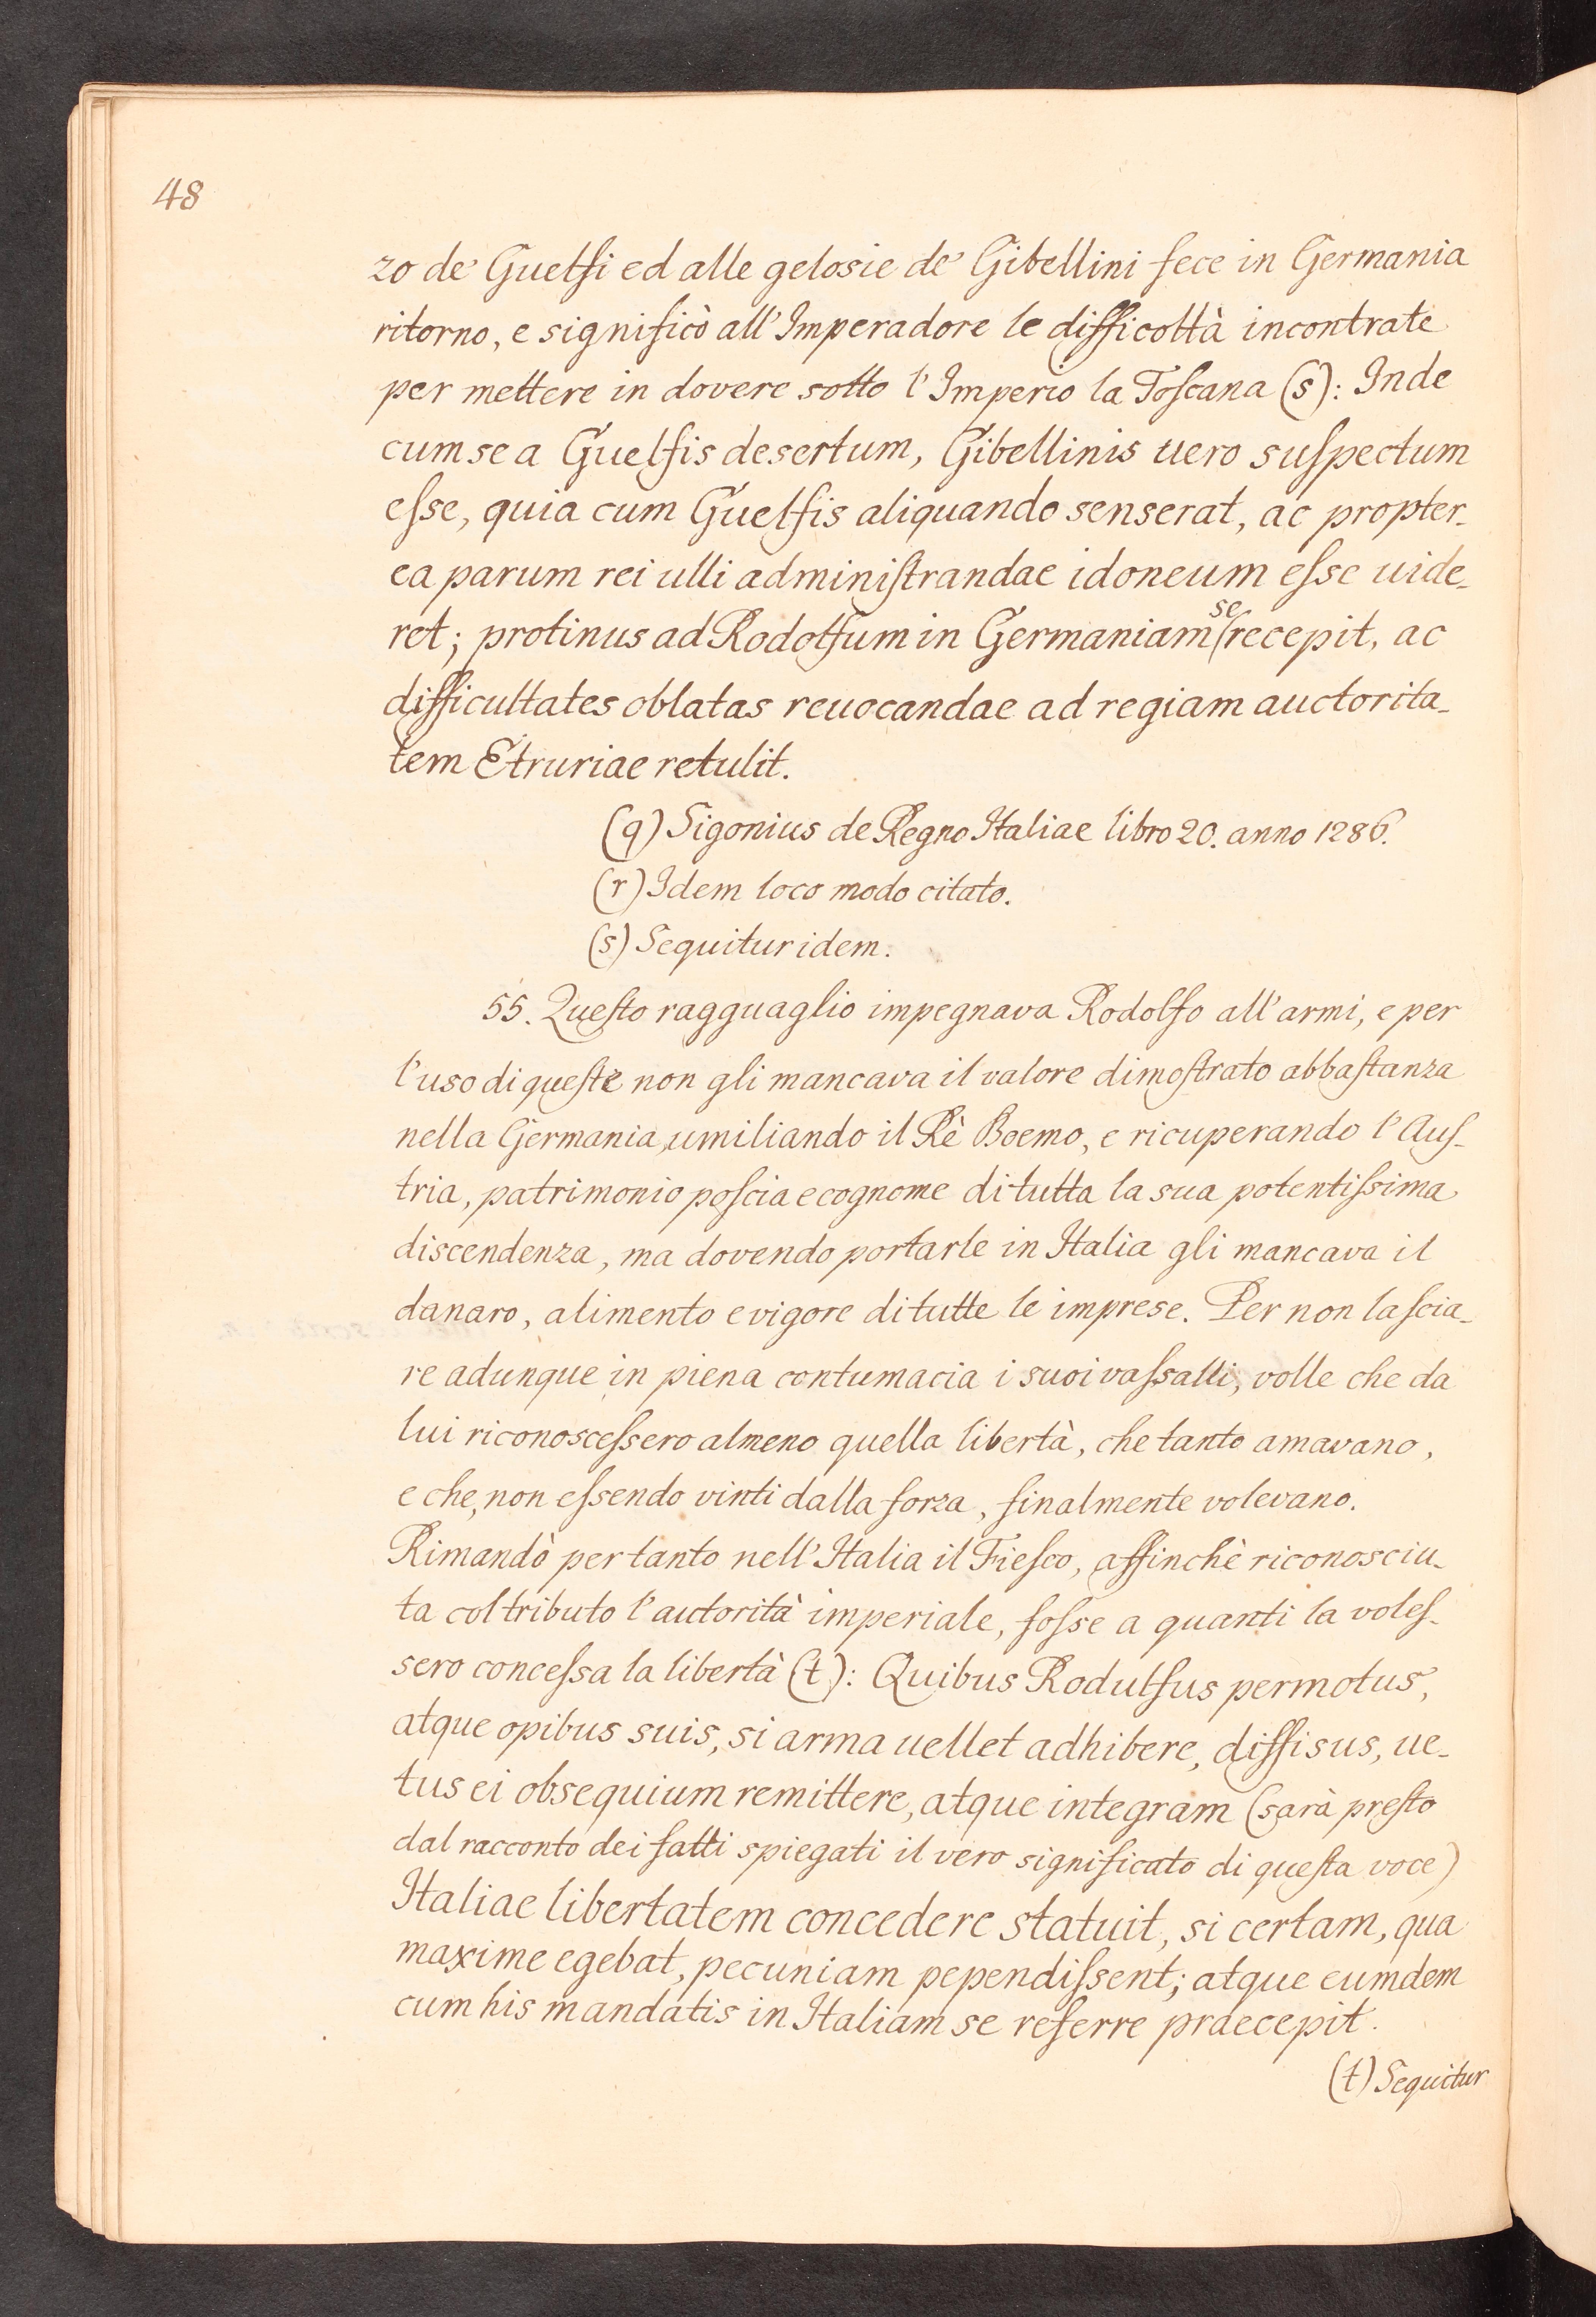 48
zo de' Guelfi ed alle gelosie de' Gibellini fece in Germania
ritorno, e significò all'Imperadore le difficoltà incontrate
per mettere in dovere sotto l'Imperio la Toſcana (s): Inde
cum se a Guelfis desertum, Gibellinis uero suſpectum
eſse, quia cum Guelfis aliquando senserat, ac propter-
ea parum rei ulli adminiſtrandae idoneum eſse uide-
ret; protinus ad Rodolfum in Germaniam se recepit, ac
difficultates oblatas reuocandae ad regiam auctorita-
tem Etruriae retulit.
(q) Sigonius de Regno Italiae libro 20. anno 1286.
(r) Idem loco modo citato.
(s) Sequitur idem.
55. Queſto ragguaglio impegnava Rodolfo all'armi, e per
l'uso di queſte non gli mancava il valore dimoſtrato abbaſtanza
nella Germania, umiliando il Rè Boemo, e ricuperando l'Auſ-
tria, patrimonio poſcia e cognome di tutta la sua potentiſsima
discendenza, ma dovendo portarle in Italia gli mancava il
danaro, alimento e vigore di tutte le imprese. Per non laſcia-
re adunque in piena contumacia i suoi vaſsalli, volle che da
lui riconosceſsero almeno quella libertà, che tanto amavano,
e che, non eſsendo vinti dalla forza, finalmente volevano.
Rimandò per tanto nell'Italia il Fieſco, affinchè riconosciu-
ta col tributo l'autorità imperiale, foſse a quanti la voleſ-
sero conceſsa la libertà (t): Quibus Rodulfus permotus,
atque opibus suis, si arma uellet adhibere, diffisus, ue-
tus ei obsequium remittere, atque integram (sarà preſto
dal racconto dei fatti spiegati il vero significato di queſta voce)
Italiae libertatem concedere statuit, si certam, qua
maxime egebat, pecuniam pependiſsent; atque eumdem
cum his mandatis in Italiam se referre praecepit.
(t) Sequitur